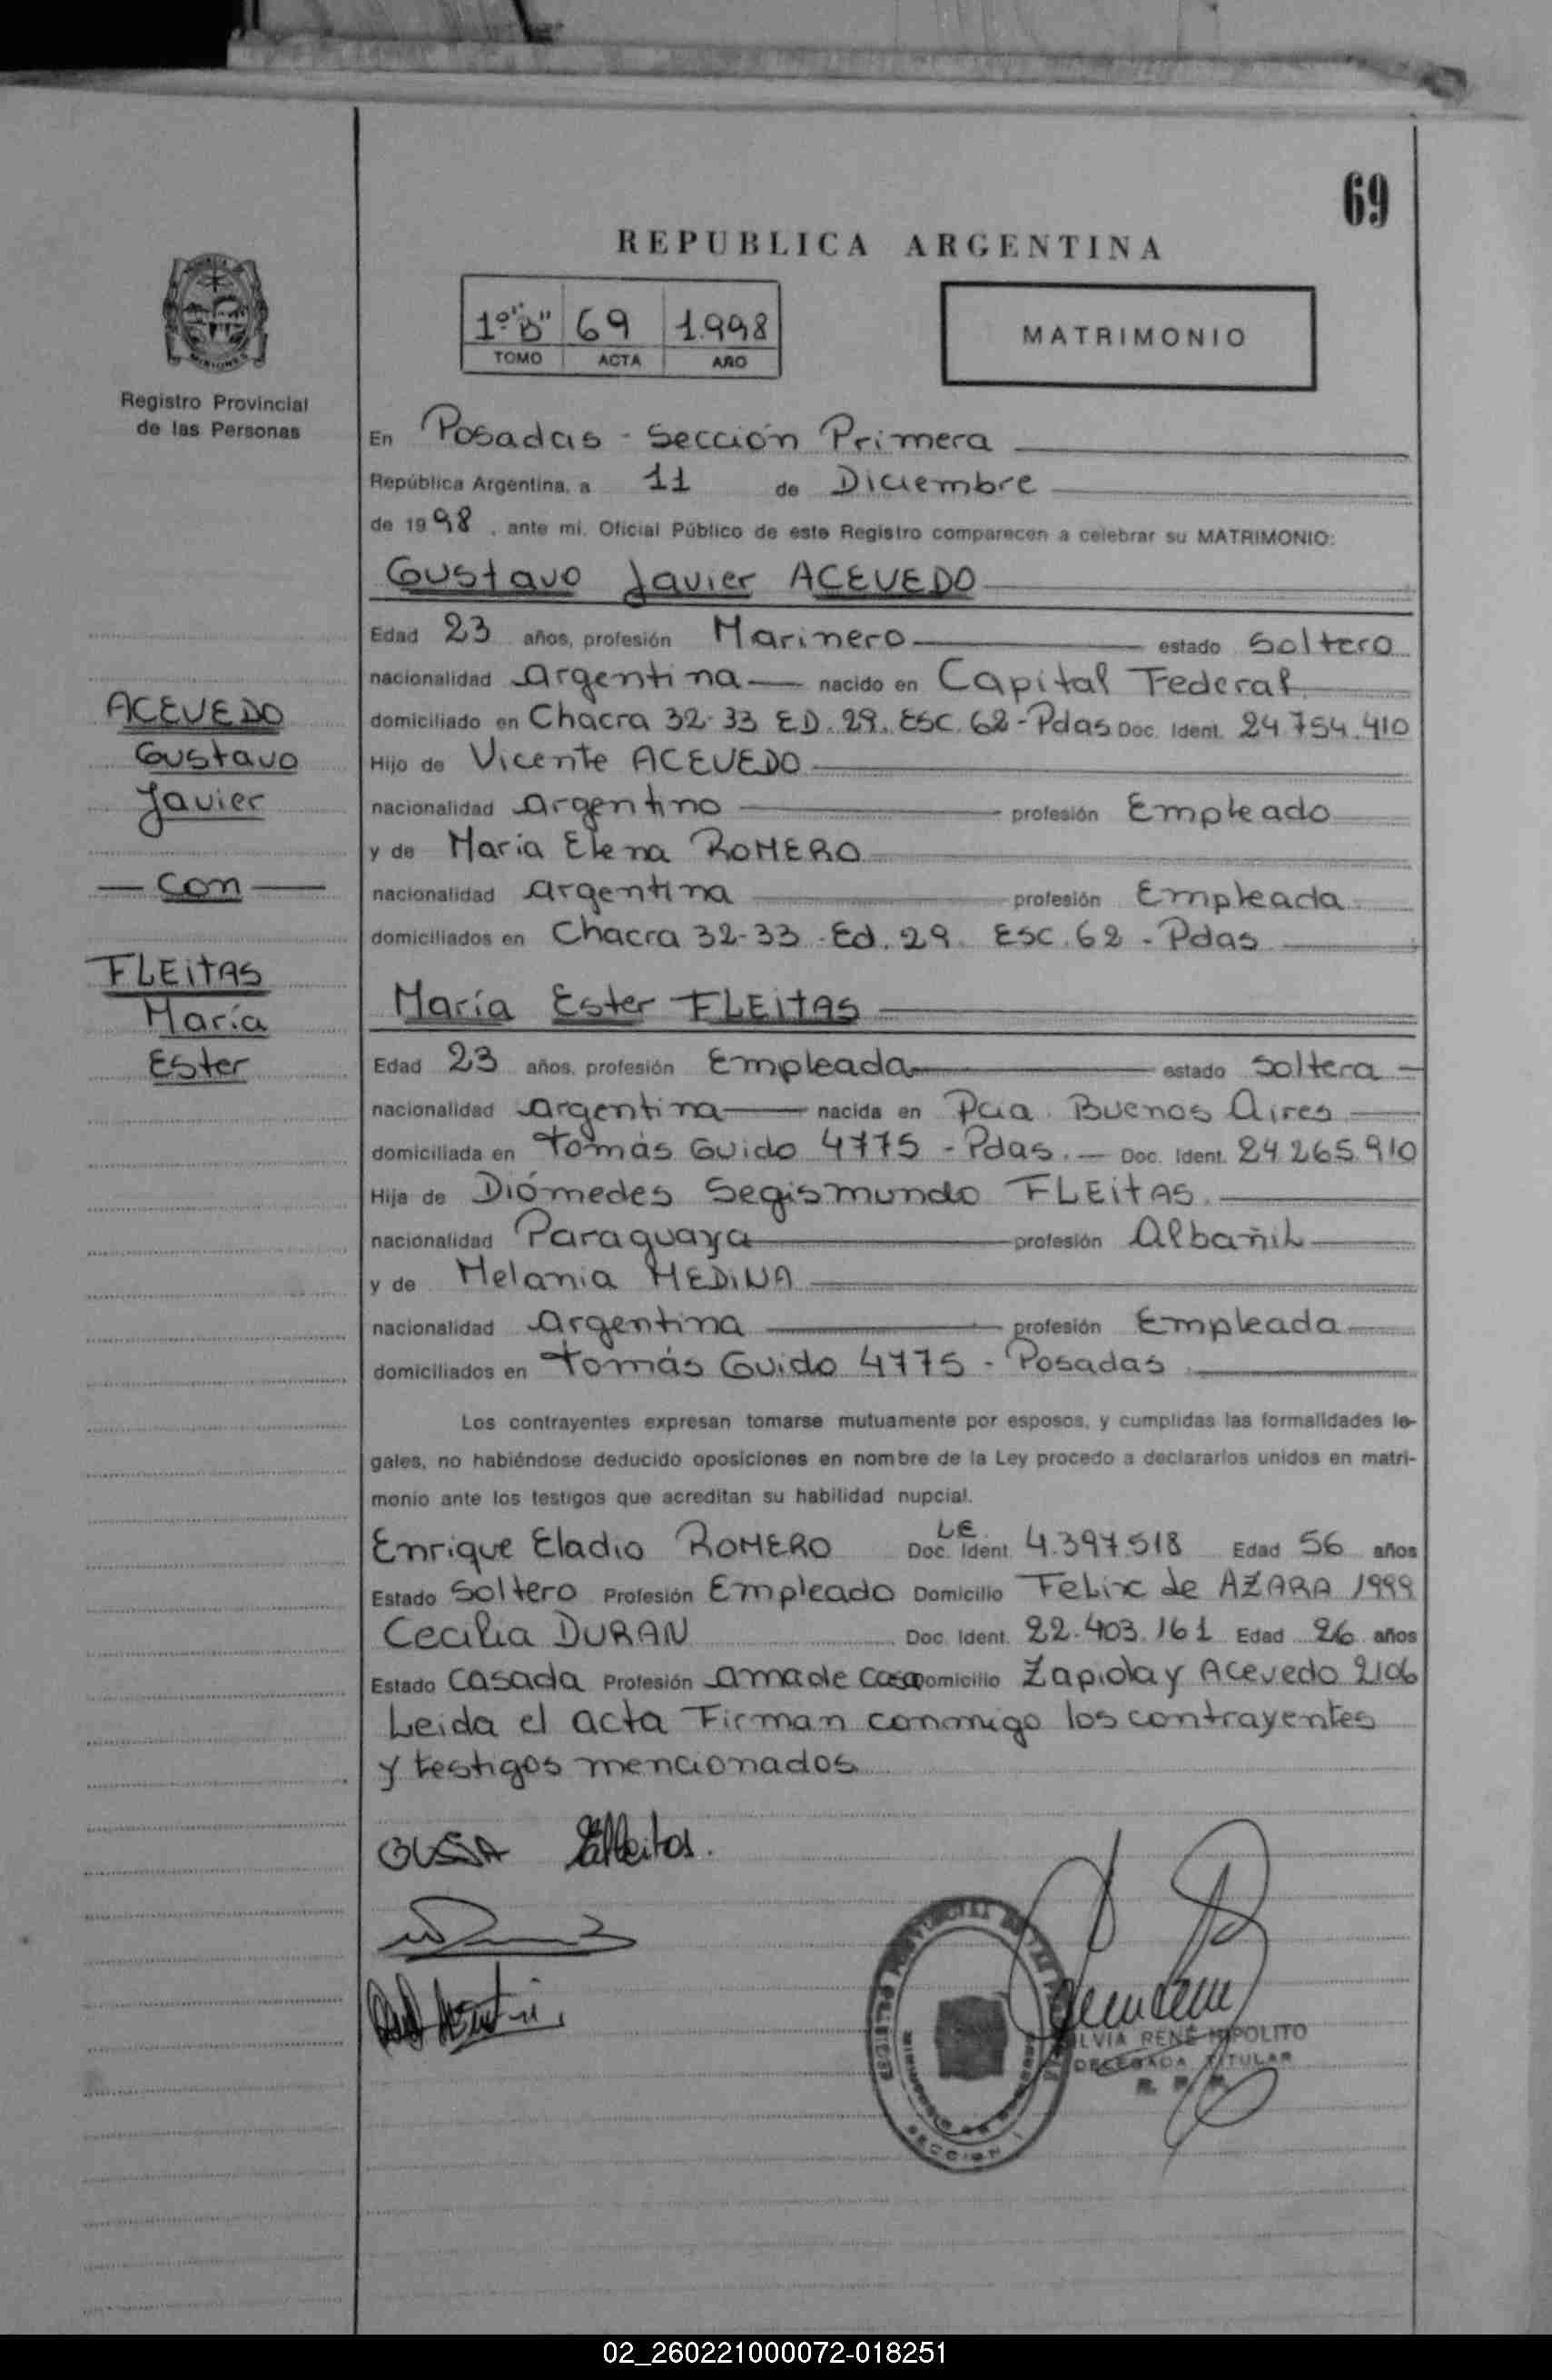 69
REPUBLICA ARGENTINA
1º "B" 69 1.998
TOMO ACTA AÑO
MATRIMONIO
Registro Provincial
de las Personas
En Posadas - Sección Primera
República Argentina, a 11 de Diciembre
de 1998, ante mi, Oficial Público de este Registro comparecen a celebrar su MATRIMONIO:
Gustavo Javier ACEVEDO
Edad 23 años, profesión Marinero estado Soltero
nacionalidad argentina nacido en Capital Federal
domiciliado en Chacra 32-33 ED. 29. ESC. 62 - Pdas Doc. Ident. 24.754.410
Hijo de Vicente ACEVEDO
nacionalidad argentino profesión Empleado
y de María Elena ROMERO
nacionalidad argentina profesión Empleada
domiciliados en Chacra 32-33 - Ed. 29. ESC. 62 - Pdas
ACEVEDO
Gustavo
Javier
con
FLEITAS
María
Ester
María Ester FLEITAS
Edad 23 años, profesión Empleada estado Soltera
nacionalidad argentina nacida en Pcia. Buenos Aires
domiciliada en Tomás Guido 4775 - Pdas. Doc. Ident. 24.265.910
Hija de Diómedes Segismundo FLEITAS
nacionalidad Paraguaya profesión Albañil
y de Melania MEDINA
nacionalidad argentina profesión Empleada
domiciliados en Tomás Guido 4775 - Posadas
Los contrayentes expresan tomarse mutuamente por esposos, y cumplidas las formalidades le-
gales, no habiéndose deducido oposiciones en nombre de la Ley procedo a declararlos unidos en matri-
monio ante los testigos que acreditan su habilidad nupcial.
Enrique Eladio ROMERO L.E. Doc. Ident. 4.397.518 Edad 56 años
Estado Soltero Profesión Empleado Domicilio Felix de AZARA 1999
Cecilia DURAN Doc. Ident. 22.403.161 Edad 26 años
Estado Casada Profesión ama de casa Domicilio Zapiola y Acevedo 2106
Leida el acta Firman conmigo los contrayentes
y testigos mencionados
SILVIA RENÉ HIPOLITO
DELEGADA TITULAR
SECCION 1
02_260221000072-018251